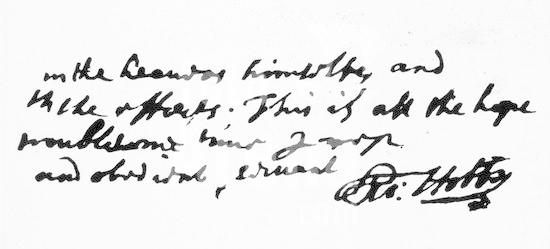 in the himselfe, and
the effects. This is all the hope
troublesome time I rest
and obedient, servant
Tho: Hobbes